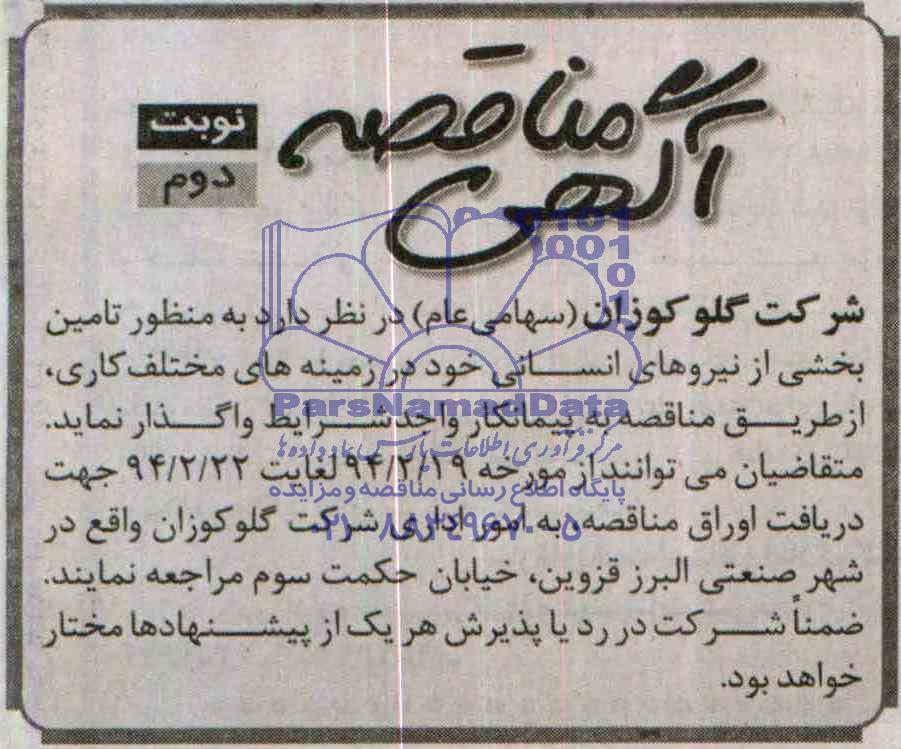 آگهی مناقصه
نوبت
دوم
شرکت گلوکوزان (سهامی عام) در نظر دارد به منظور تامین
بخشی از نیروهای انسانی خود در زمینه های مختلف کاری،
ازطریق مناقصه به پیمانکار واجد شرایط واگذار نماید.
متقاضیان می توانند از مورخه ۹۴/۲/۱۹ لغایت ۹۴/۲/۲۲ جهت
دریافت اوراق مناقصه، به امور اداری شرکت گلوکوزان واقع در
شهر صنعتی البرز قزوین، خیابان حکمت سوم مراجعه نمایند.
ضمناً شرکت در رد یا پذیرش هر یک از پیشنهادها مختار
خواهد بود.
ParsNamadData
مرکز فرآوری اطلاعات پارس نماد داده ها
پایگاه اطلاع رسانی مناقصه و مزایده
۰۲۱-۸۸۳۴۹۶۷۰-۵